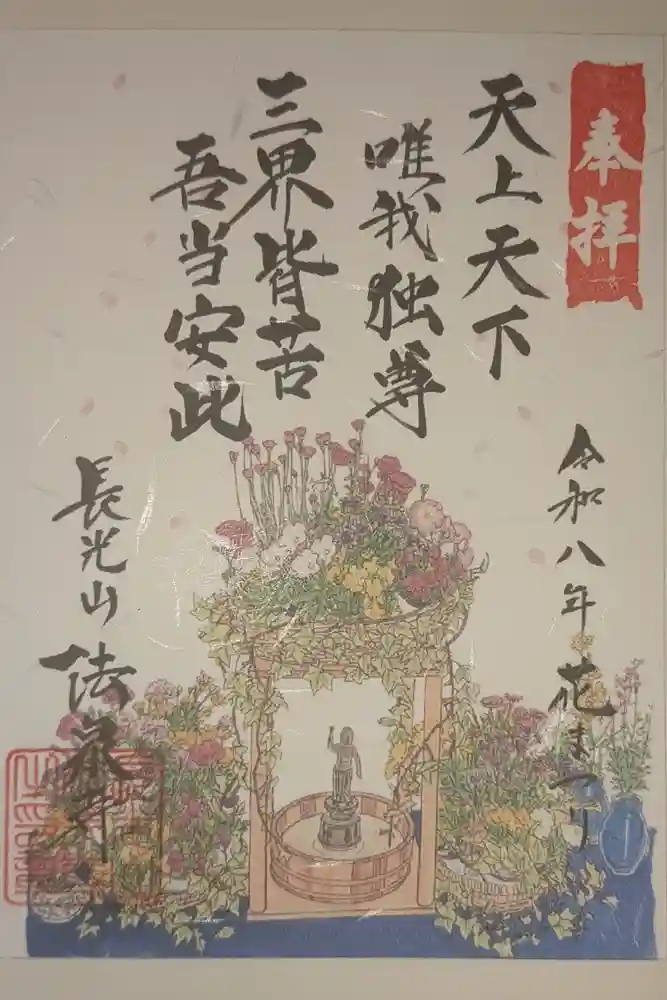 奉拝
令和八年 花まつり
天上天下
唯我独尊
三界皆苦
吾当安此
長光山 法泉寺